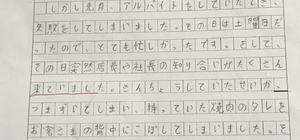 しかし先月、アルバイトをしていたとき、
失敗をしてしまいました。その日は土曜日だ
ったので、とても忙しかったです。そして、
その日突然店長や社長の知り合いがたくさん
来ていました。きんちょうしていたせいか、
つまずいてしまい、持っていた焼肉のタレを
お客さまの背中にこぼしてしまいました。そ